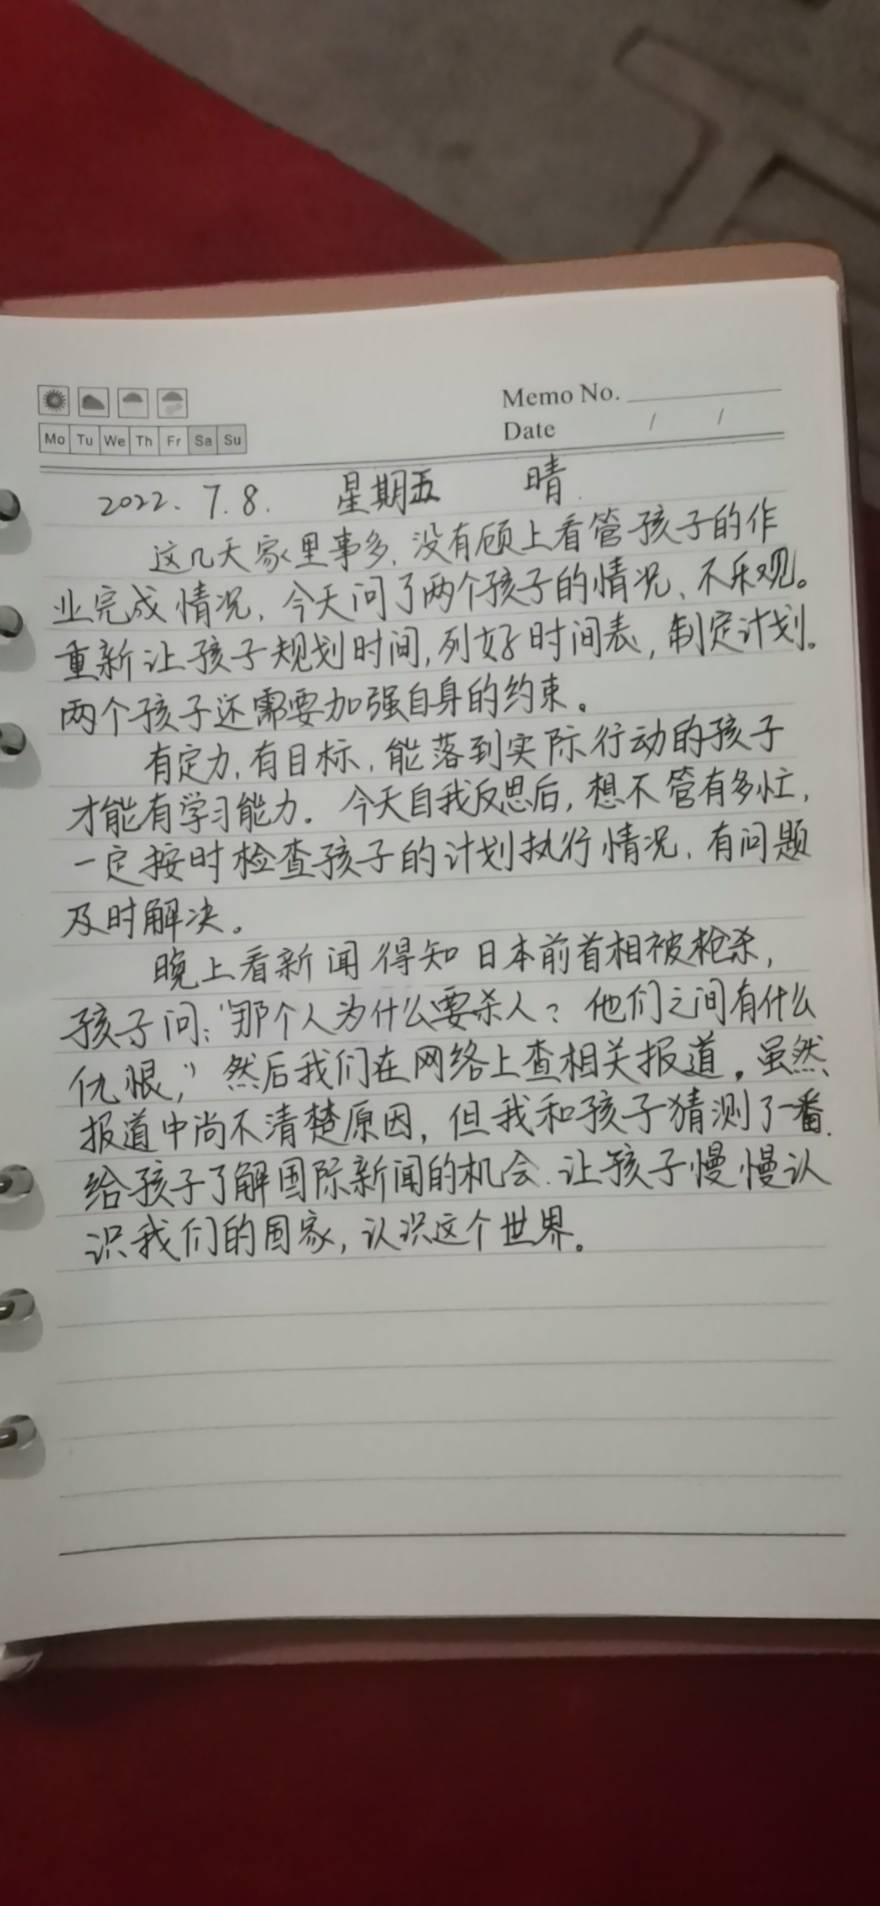 Memo No.
Mo Tu We Th Fr Sa Su
Date / /
2022. 7.8. 星期五 晴.
这几天家里事多,没有顾上看管孩子的作
业完成情况,今天问了两个孩子的情况、不乐观。
重新让孩子规划时间,列好时间表,制定计划。
两个孩子还需要加强自身的约束。
有定力,有目标,能落到实际行动的孩子
才能有学习能力。今天自我反思后,想不管有多忙,
一定按时检查孩子的计划执行情况,有问题
及时解决。
晚上看新闻得知日本前首相被枪杀,
孩子问:“那个人为什么要杀人?他们之间有什么
仇恨,”然后我们在网络上查相关报道。虽然
报道中尚不清楚原因,但我和孩子猜测了一番.
给孩子了解国际新闻的机会.让孩子慢慢认
识我们的国家,认识这个世界。